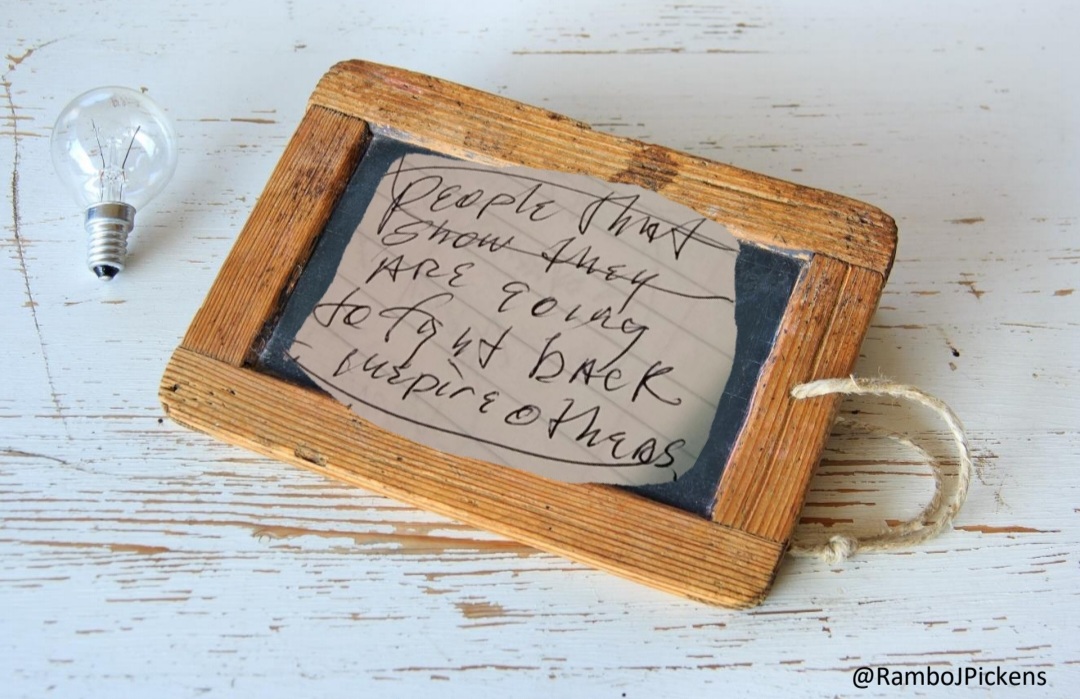 People that
show they
ARE going
to fight back
inspire others
@RamboJPickens